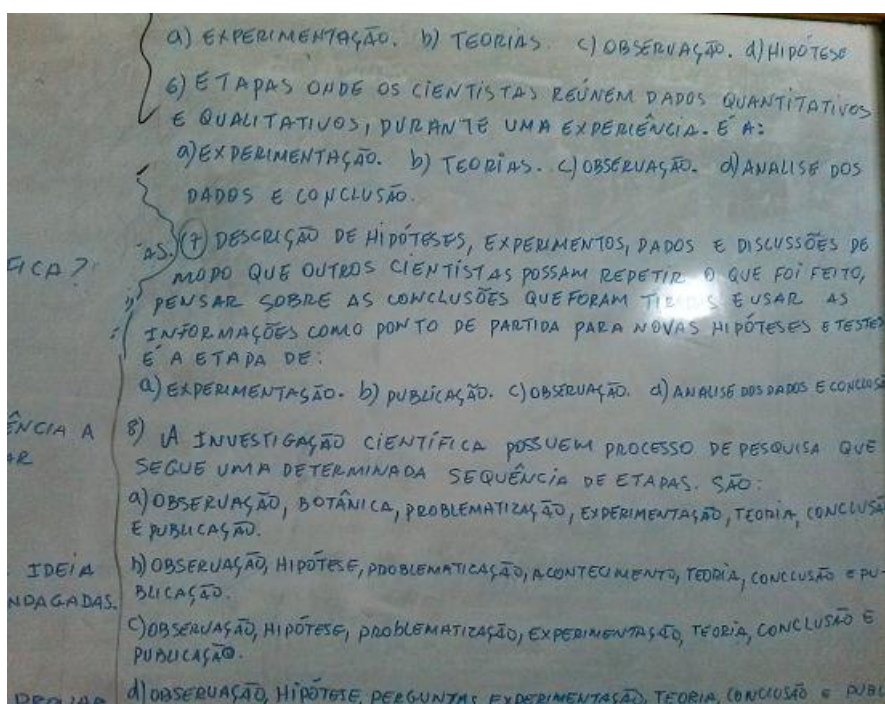 a) EXPERIMENTAÇÃO. b) TEORIAS. c) OBSERVAÇÃO. d) HIPÓTESE
6) ETAPAS ONDE OS CIENTISTAS REÚNEM DADOS QUANTITATIVOS
E QUALITATIVOS, DURANTE UMA EXPERIÊNCIA. É A:
a) EXPERIMENTAÇÃO. b) TEORIAS. c) OBSERVAÇÃO. d) ANALISE DOS
DADOS E CONCLUSÃO.
AS. 7) DESCRIÇÃO DE HIPÓTESES, EXPERIMENTOS, DADOS E DISCUSSÕES DE
FICA? MODO QUE OUTROS CIENTISTAS POSSAM REPETIR O QUE FOI FEITO,
PENSAR SOBRE AS CONCLUSÕES QUE FORAM TIRADAS E USAR AS
INFORMAÇÕES COMO PONTO DE PARTIDA PARA NOVAS HIPÓTESES E TESTES
É A ETAPA DE:
a) EXPERIMENTAÇÃO. b) PUBLICAÇÃO. c) OBSERVAÇÃO. d) ANALISE DOS DADOS E CONCLUSÃ
ÊNCIA A 8) A INVESTIGAÇÃO CIENTÍFICA POSSUEM PROCESSO DE PESQUISA QUE
AR SEGUE UMA DETERMINADA SEQUÊNCIA DE ETAPAS. SÃO:
a) OBSERVAÇÃO, BOTÂNICA, PROBLEMATIZAÇÃO, EXPERIMENTAÇÃO, TEORIA, CONCLUSÃ
E PUBLICAÇÃO.
IDEIA b) OBSERVAÇÃO, HIPÓTESE, PROBLEMATICAÇÃO, ACONTECIMENTO, TEORIA, CONCLUSÃO E PU-
NDAGADAS. BLICAÇÃO.
c) OBSERVAÇÃO, HIPÓTESE, PROBLEMATIZAÇÃO, EXPERIMENTAÇÃO, TEORIA, CONCLUSÃO E
PUBLICAÇÃO.
d) OBSERVAÇÃO, HIPÓTESE, PERGUNTAS EXPERIMENTAÇÃO, TEORIA, CONCLUSÃO E PUBL